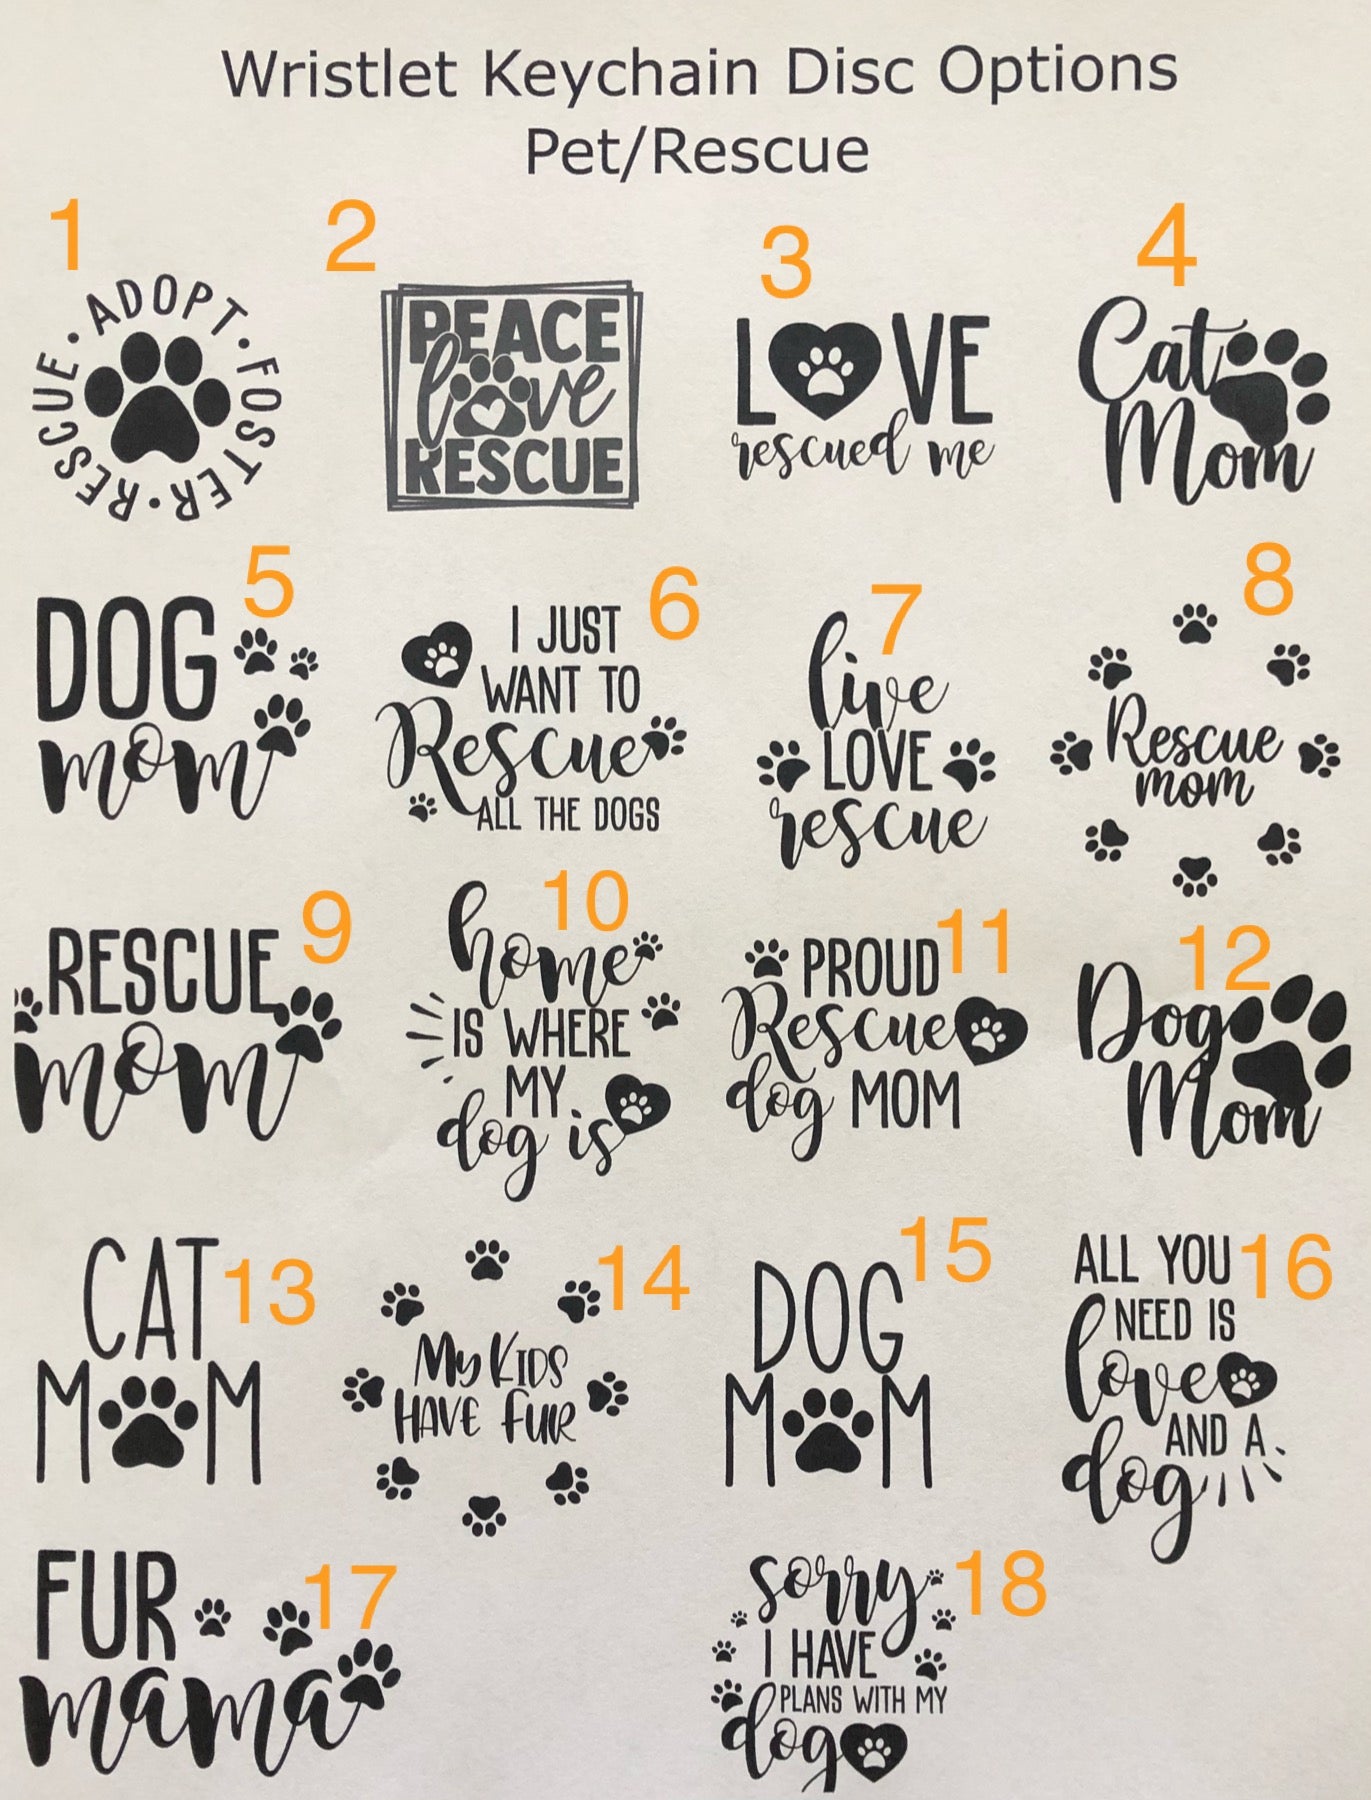 Wristlet Keychain Disc Options
Pet/Rescue
1
ADOPT • FOSTER • RESCUE •
2
PEACE
love
RESCUE
3
LOVE
rescued me
4
Cat
Mom
5
DOG
mom
6
I JUST
WANT TO
Rescue
ALL THE DOGS
7
live
LOVE
rescue
8
Rescue
mom
9
RESCUE
mom
10
home
IS WHERE
MY
dog is
11
PROUD
Rescue
dog MOM
12
Dog
Mom
13
CAT
MOM
14
My KIDS
HAVE FUR
15
DOG
MOM
16
ALL YOU
NEED IS
love
AND A
dog
17
FUR
mama
18
sorry
I HAVE
PLANS WITH MY
dog